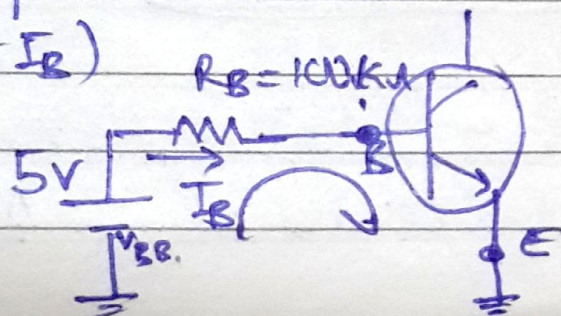 I_B)
R_B=100KΩ
B
5V
I_B
V_BB.
E